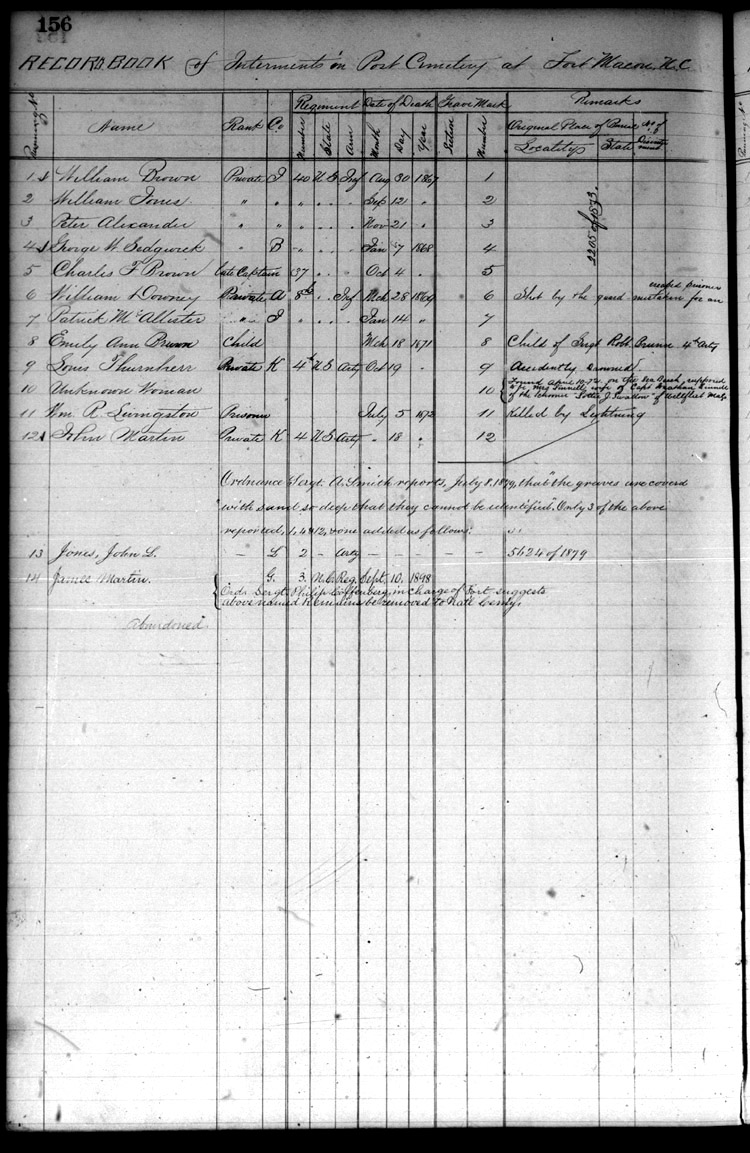 156
RECORD BOOK of Interments in Post Cemetery at Fort Macon, N.C.
Name Rank Co Regiment Date of Death Grave Mark Remarks
Number State Arm Month Day Year Section Number Original Place of Locality State
1 William Brown Private I 40 U S Inf Aug 30 1867 1
2 William Jones " " " . . . Sep 12 " 2
3 Peter Alexander " " " . . . Nov 21 " 3
4 George W. Sedgwick " B " . . . Jan 7 1868 4
5 Charles F. Brown late Captain 37 . . . Oct 4 . 5
2205 of 1873.
6 William Downey Private A 8th . . Inf Mch 28 1869 6 Shot by the guard mistaken for an escaped prisoner
7 Patrick McAllister " . . " I " . . . Jan 14 " 7
8 Emily Ann Child Mch 18 1871 8 Child of Sergt Robt 4th Arty
9 Louis Thurnherr Private K 4th U S Arty Oct 19 . 9 Accidently drowned
10 Unknown Woman 10 Found April 19-72, on the Sea Beach, supposed to be Mrs wife of Capt
of the schooner "Lottie J Swallow" of Wellfleet Mass
11 Wm R. Livingston Prisoner July 5 1872 11 Killed by Lightning
12 John Martin Private K 4 U S Arty . 18 . 12
Ordnance Sergt. A. Smith reports, July 8, 1879, that "the graves are coverd
with sand so deep that they cannot be identified". Only 3 of the above
reported, 1, 4 & 12, & one added as follows:
13 Jones, John L. – L 2 – Arty – – – – – 5624 of 1879
14 James Martin. G. 3. N.C. Reg. Sept. 10, 1898
Ord. Sergt. Philip in charge of Fort suggests
above named Remains be removed to Natl Cemty.
Abandoned.